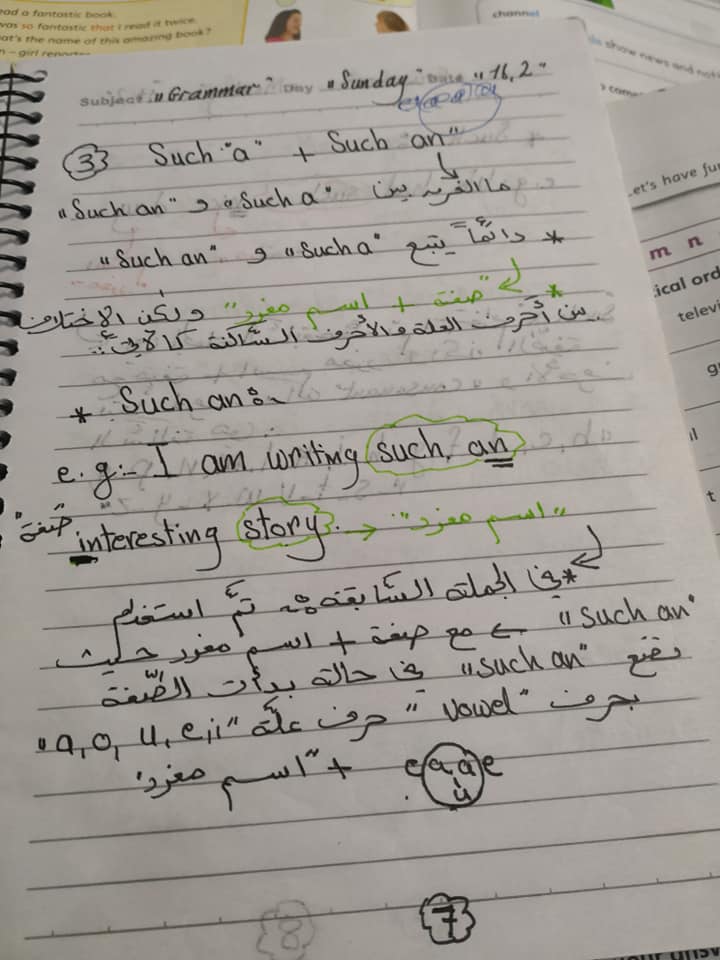 ad a fantastic book.
was so fantastic that I read it twice.
at's the name of this amazing book?
channel
show news and
Subject: "Grammar" Day "Sunday" Date "16,2"
3 Such "a" + Such an"
ما الفرق بين "Such a" و "Such an"
* دائماً يتبع "Such a" و "Such an"
* "صفة + اسم مفرد" ولكن الاختلاف
بين أحرف العلة والأحرف الساكنة كالآتي:
* Such an:-
e.g:- I am writing such an
interesting story. → "اسم مفرد"
"صفة"
* في الجملة السَّابقة تمَّ استخدام
"such an" ← مع صفة + اسم مفرد حيث
نضع "such an" في حالة بدأت الصِّفة
بحرف "vowel" حرف علَّة "a, o, u, e, i"
+ "اسم مفرد"
Let's have fun
m n
ical ord
televi
7
8